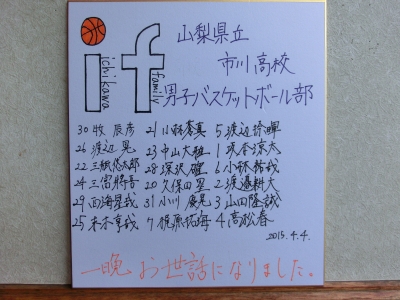 if
ichikawa
family
山梨県立
市川高校
男子バスケットボール部
30 牧 辰彦 21 小林蒼真 5 渡辺
26 渡辺 晃 23 中山大 1 涼太
22 三 悠太郎 28 深沢 確 6 小林祐哉
24 三宮将吾 20 久保田 2 渡邉耕大
29 西海晃哉 31 小川 3 山田隆誠
25 末木享哉 7 梶原拓海 4 高松春
2015.4.4.
一晩 お世話になりました。